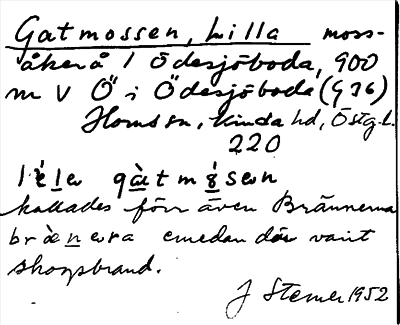 Gatmossen, Lilla moss-
åker å 1 Ödesjöboda, 900
m V Ö i Ödesjöboda (G 36)
Horns sn, Kinda hd, Östg.l.
220
lɩ̀lɐ gàtmòsɐn
kallades förr även Brännorna
brænɐra emedan där varit
skogsbrand.
J Stemer 1952